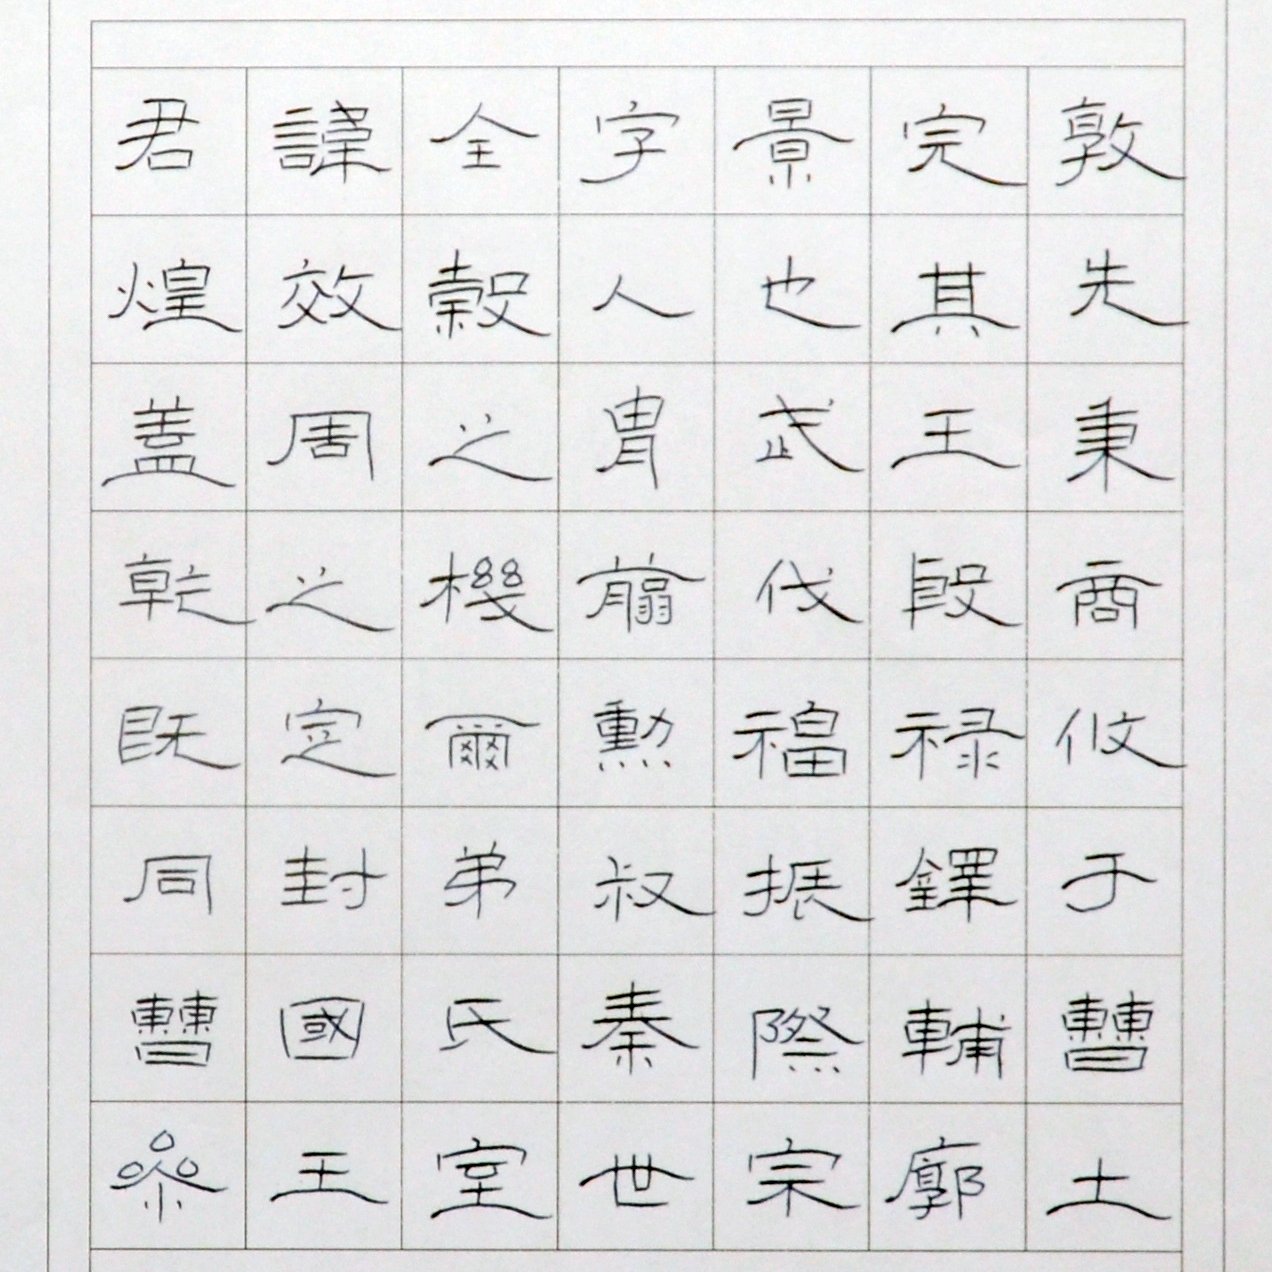 君諱全字景完敦
煌效穀人也其先
蓋周之胄武王秉
乾之機翦伐殷商
既定爾勳福禄攸
同封弟叔振鐸于
曹國氏秦際輔曹
參王室世宗廓土